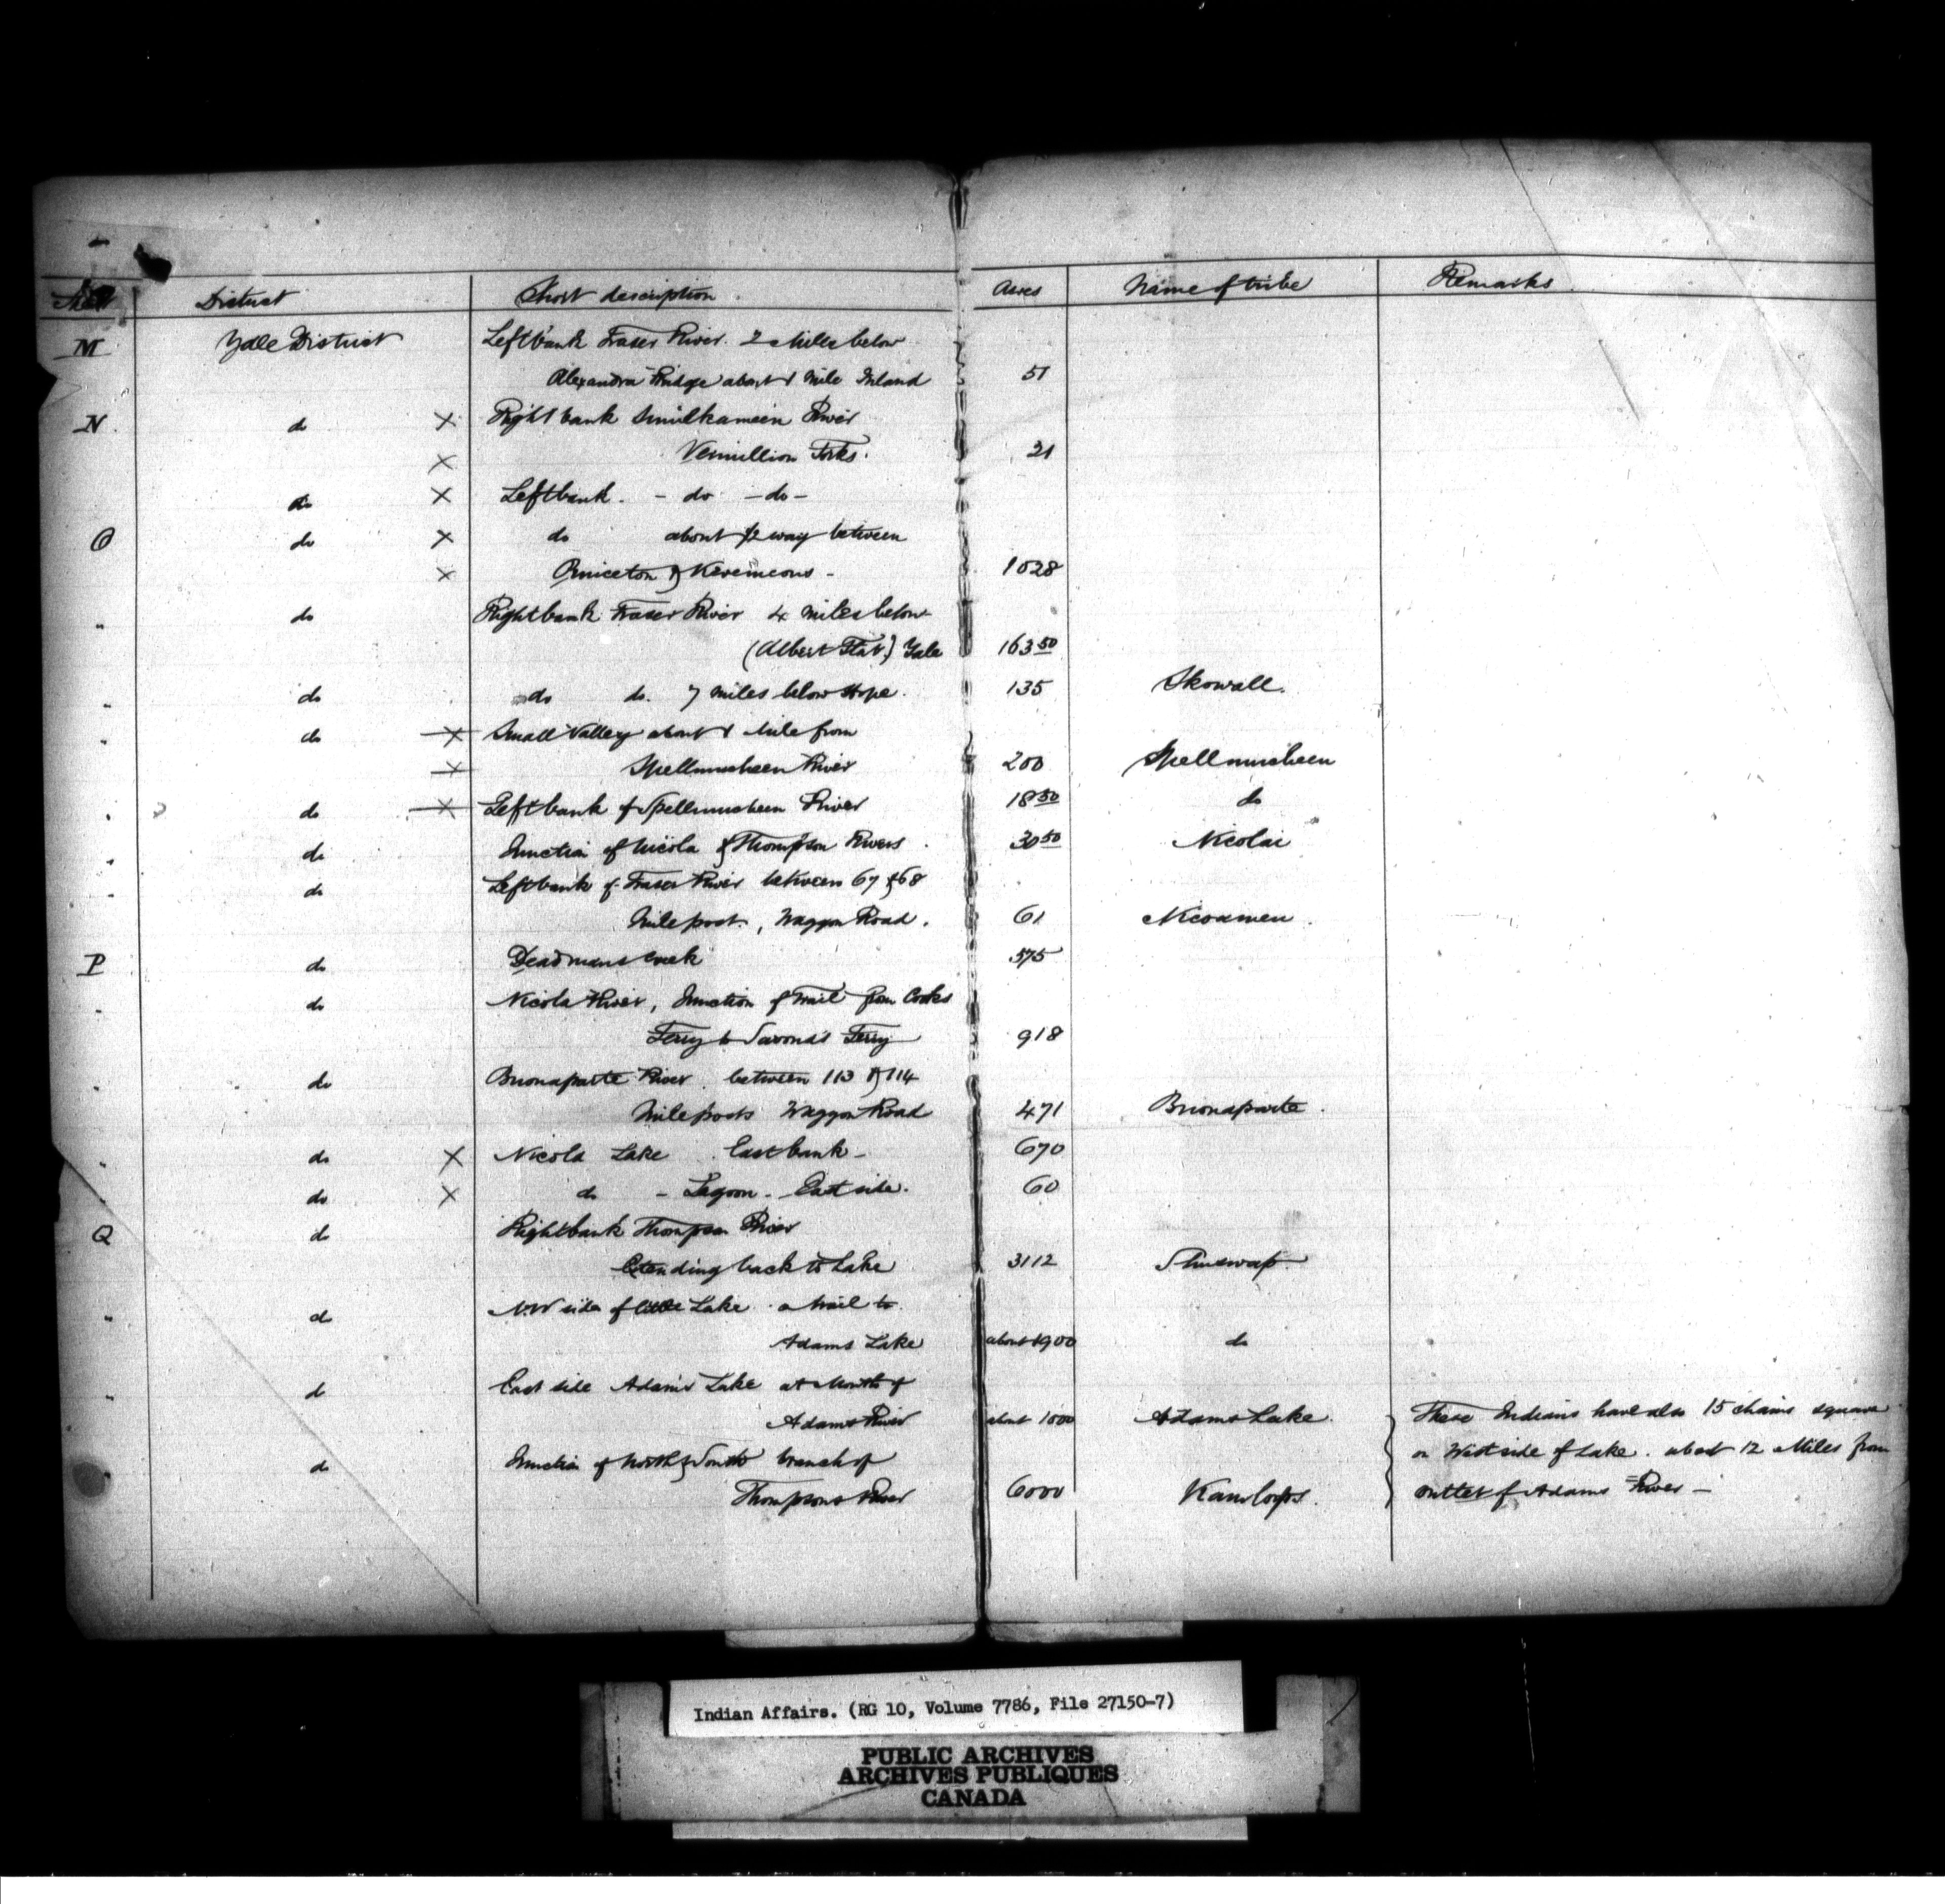 District Short description Acres Name of tribe Remarks
M Yale District Left bank Fraser River. 2 Miles below
Alexandra Bridge about 1 Mile Inland 51
N. do X Right bank Similkameen River
X Vermillion Forks. 21
do X Left bank. - do - do -
O do X do about 1/2 way between
X Princeton & Keremeous - 1028
" do Right bank Fraser River 4 miles below
(Albert Flat.) Yale 163 50
" do do do. 7 miles below Hope. 135 Skowall.
" do X Small Valley about 1 Mile from
X Spellmucheen River 200 Spellmucheen
" do X Left bank of Spellmucheen River 18 50 do
" do Junction of Nicola & Thompson Rivers. 30 50 Nicolai
" do Left bank of Fraser River between 67 & 68
Mile post., Waggon Road. 61 Nicoamen.
P do Deadmans Creek 575
" do Nicola River, Junction of Trail from Cooks
Ferry to Savona's Ferry 918
" do Buonaparte River. between 113 & 114
Mile posts Waggon Road 471 Buonaparte.
" do X Nicola Lake. East bank -
670
" do X do - Lagoon - East side. 60
Q do Right bank Thompson River
Extending back to Lake 3112 Shuswap.
" do N.W side of little Lake. a trail to
Adams Lake about 1900 do
" do East side Adams Lake at Mouth of
Adams River about 1000 Adams Lake. These Indians have also 15 chains square
do Junction of North & South branch of on West side of Lake. about 12 Miles from
Thompsons River 6000 Kamloops. outlet of Adams River -
Indian Affairs. (RG 10, Volume 7786, File 27150-7)
PUBLIC ARCHIVES
ARCHIVES PUBLIQUES
CANADA